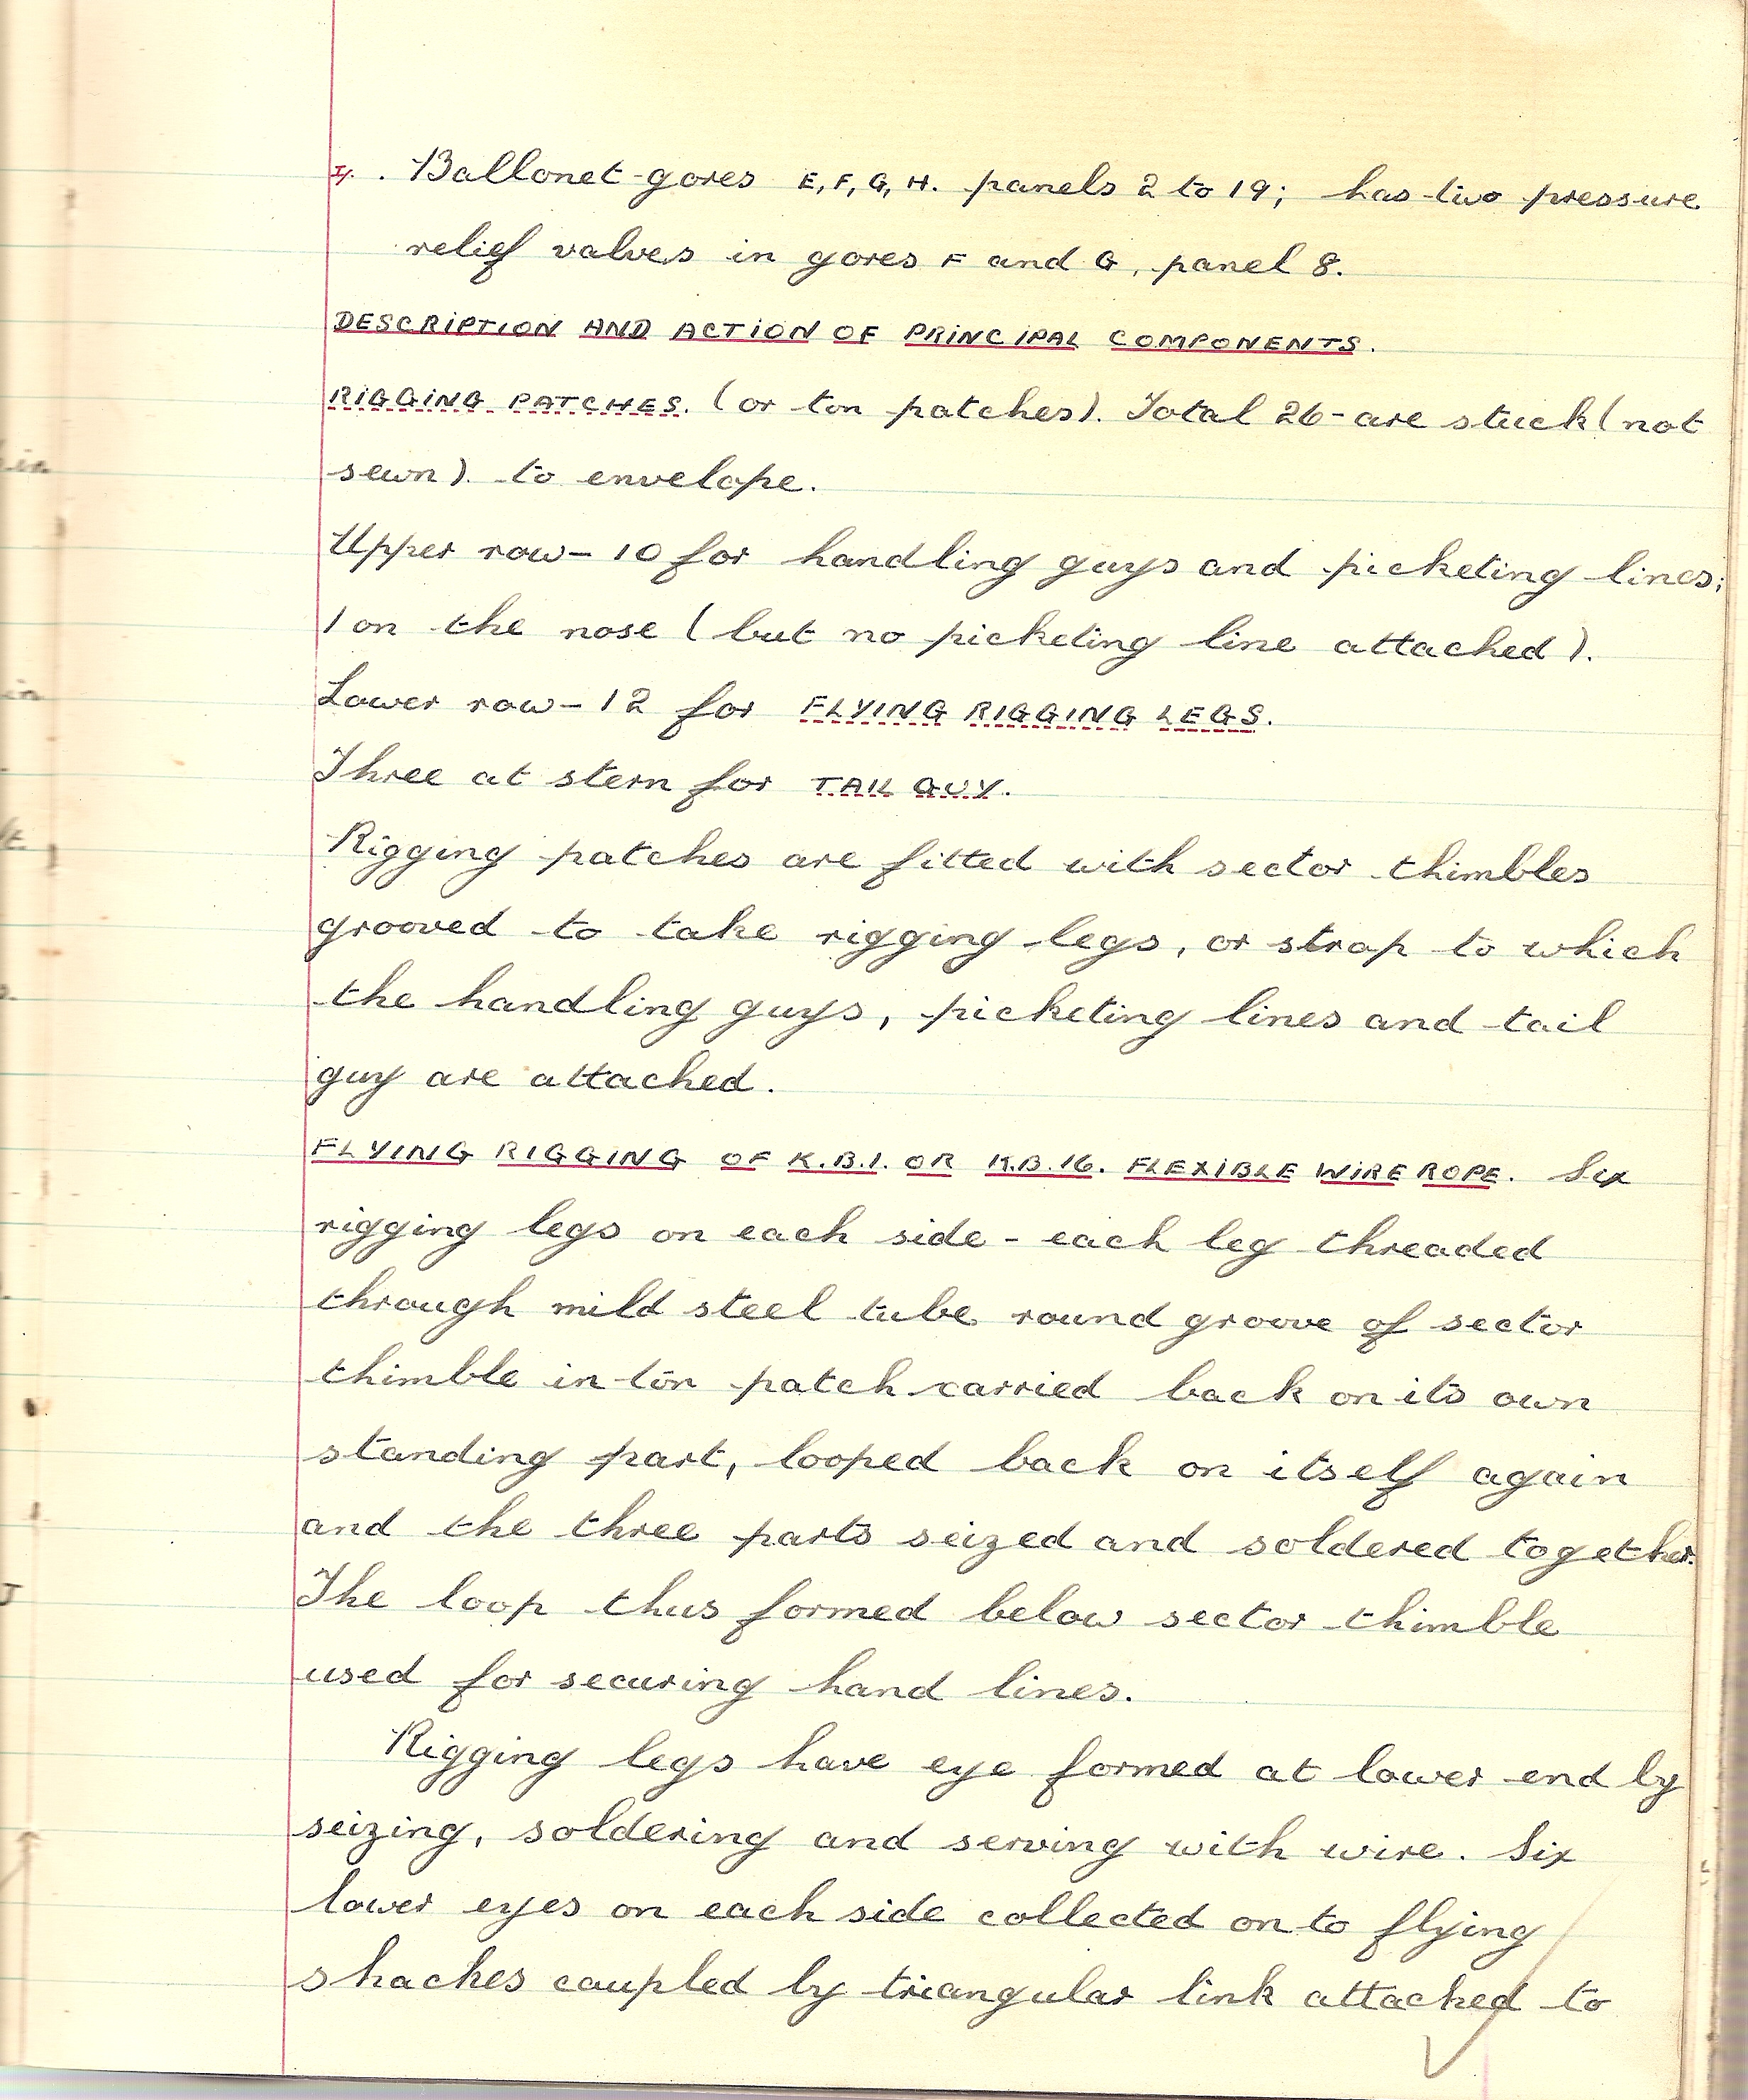 . Ballonet-gores E, F, G, H. panels 2 to 19; has two pressure
relief valves in gores F and G, panel 8.
DESCRIPTION AND ACTION OF PRINCIPAL COMPONENTS.
RIGGING PATCHES. (or ton patches). Total 26 - are stuck (not
sewn). to envelope.
Upper row - 10 for handling guys and picketing lines;
1 on the nose (but no picketing line attached).
Lower row - 12 for FLYING RIGGING LEGS.
Three at stern for TAIL GUY.
Rigging patches are fitted with sector thimbles
grooved to take rigging legs, or strap to which
the handling guys, picketing lines and tail
guy are attached.
FLYING RIGGING OF K.B.1. OR K.B.16. FLEXIBLE WIRE ROPE. Six
rigging legs on each side - each leg threaded
through mild steel tube round groove of sector
thimble in ton patch carried back on its own
standing part, looped back on itself again
and the three parts seized and soldered together.
The loop thus formed below sector thimble
used for securing hand lines.
Rigging legs have eye formed at lower end by
seizing, soldering and serving with wire. Six
lower eyes on each side collected on to flying
shackes coupled by triangular link attached to